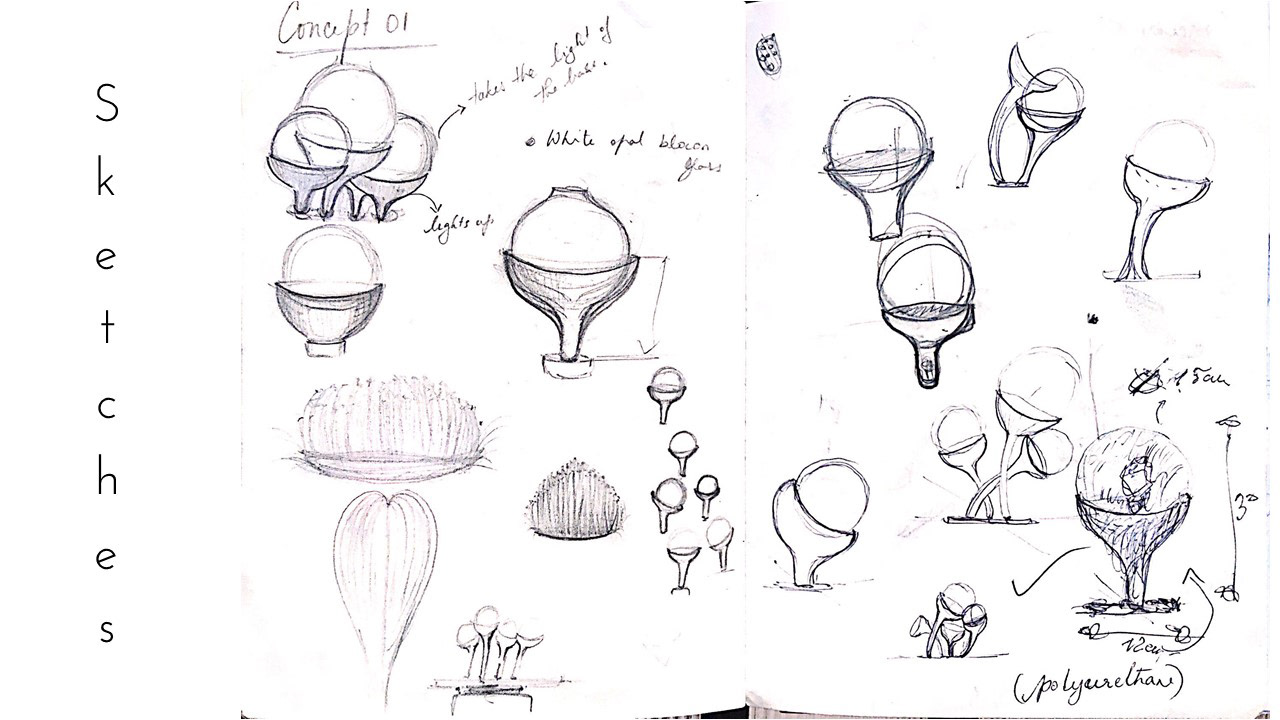 Sketches
Concept 01
takes the light of
the base.
White opal blown
glass
lights up
3"
12cm
(polyurethane)